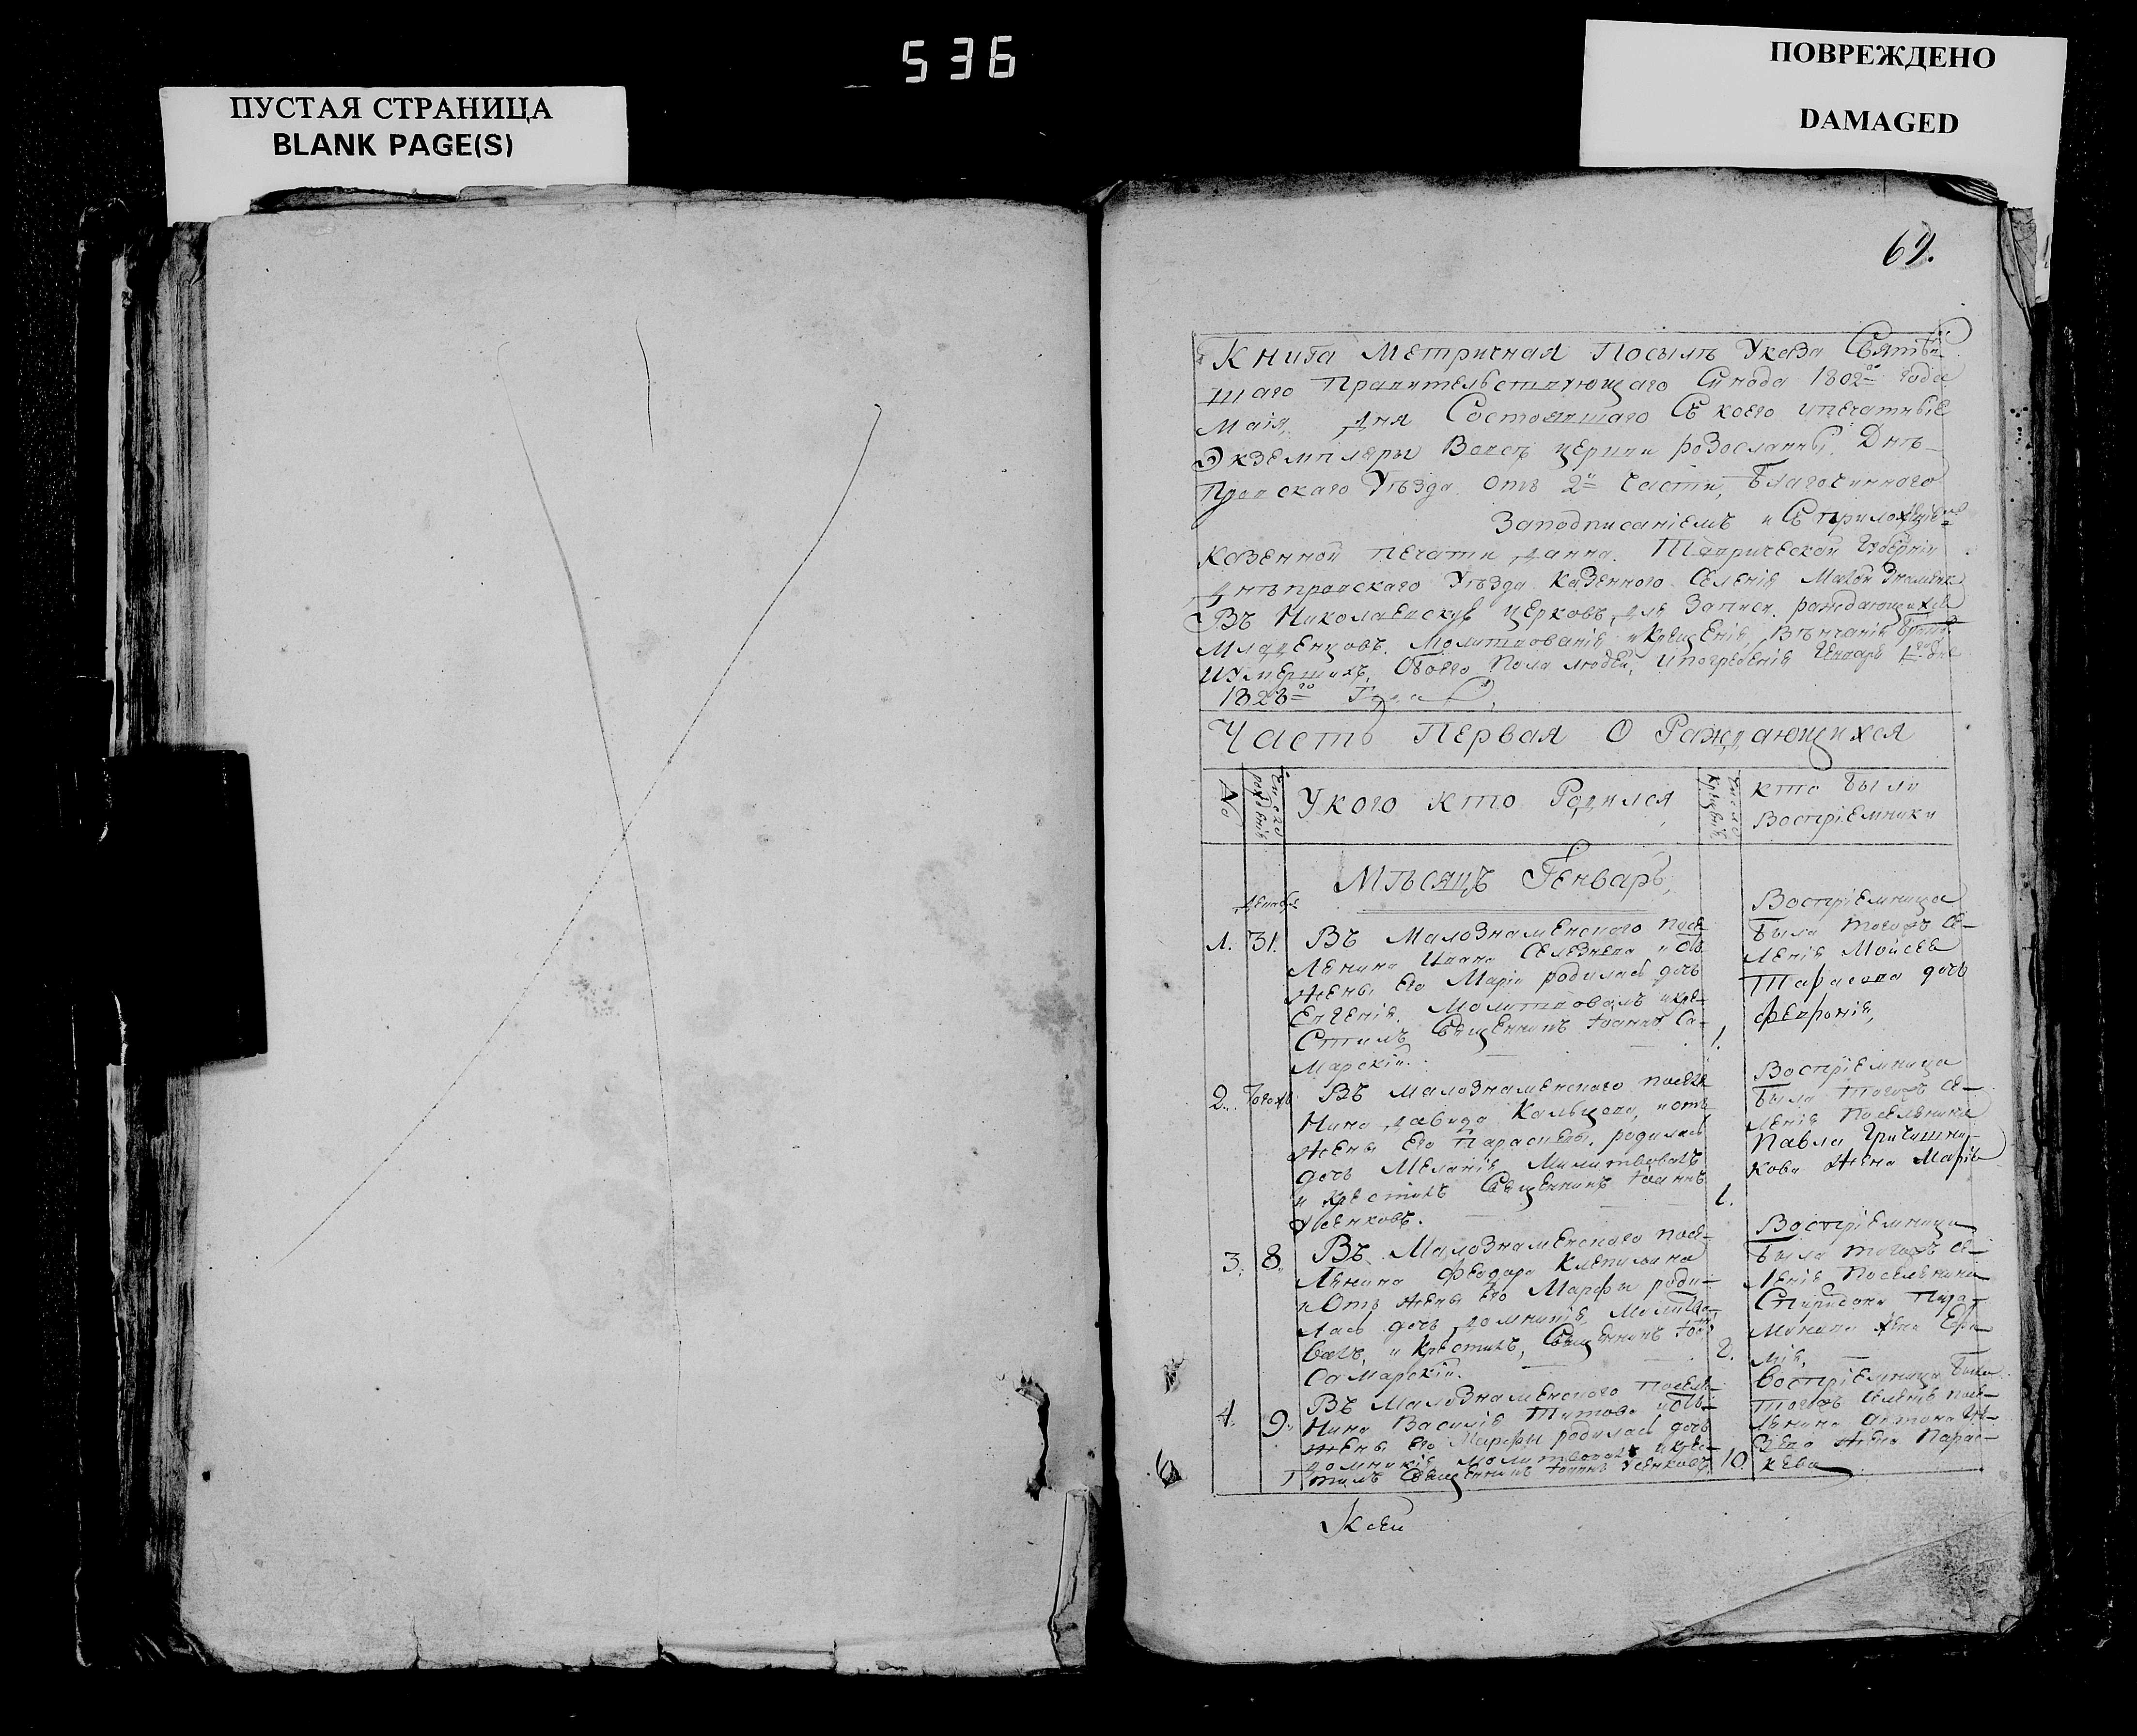 536
ПУСТАЯ СТРАНИЦА
BLANK PAGE(S)
ПОВРЕЖДЕНО
DAMAGED
69.
Книга Метричная Посылъ Указа Святѣй-
шаго Правительствующаго Синода 1802го Года
Маія, дня Состоявшаго Съ коего и печатныѣ
Экземпляры Вовсѣ церкви розосланны. Днѣ-
провскаго Уѣзда Отъ 2й Части, Благочиннаго
Заподписаніемъ и Съ приложеніемъ
Казенной печати данна. Таврической Губерніи
Днѣпровскаго Уѣзда Казенного Селенія Малой Знаменки
Въ Николаевскую церковъ, для Записи раждающихся
Младенцовъ. Молитвованія и Крещенія, Вѣнчанія
Иумершихъ, Обоего Пола людей, ипогребенія Генваря 1го дня
1828го Года
Часть Первая О Раждающихся
№
Число рожденія
Укого кто Родился
Число Крещенія
Кто были
Воспріемники
Мѣсяцъ Генварь,
Декабря
1. 31. Въ Малознаменского посе-
ленина Ивана Селезнева и отъ
жены Его Маріи родилась дочь
Евгенія. Молитвовалъ икре-
стилъ Священникъ Іоаннъ Са-
марскій. 1.
Воспріемница
была тогожъ се-
ленія Мойсея
Тарасова дочь
Феврония,
2. Тогожъ Въ Малознаменского поселе-
нина Давида Кальцова, и отъ
жены Его Парасковы. родилась
дочь Меланія Молитвовалъ
и крестилъ Священникъ Іоаннъ
Усенковъ. 1.
Воспріемница
была тогожъ се-
ленія поселенина
Павла Гричишни-
кова жена Марія
3. 8. Въ Малознаменского посе-
ленина Феодора Клепинина
иОтъ жены Его Марфы роди-
лась дочь Домникія, Молитво-
валъ, и Крестилъ, Священникъ
Самарскій. 9.
Воспріемница
была тогожъ се-
ленія поселенина
Спиридона
жена
4. 9. Въ Малознаменского поселе-
нина Василія Титова иотъ
жены Его Марфы родилась дочь
Домникія молитвовалъ икрес-
тилъ Священникъ Іоаннъ Усенковъ 10.
Воспріемница была
тогожъ селенія посе-
ленина Антона
жена Парас-
кева